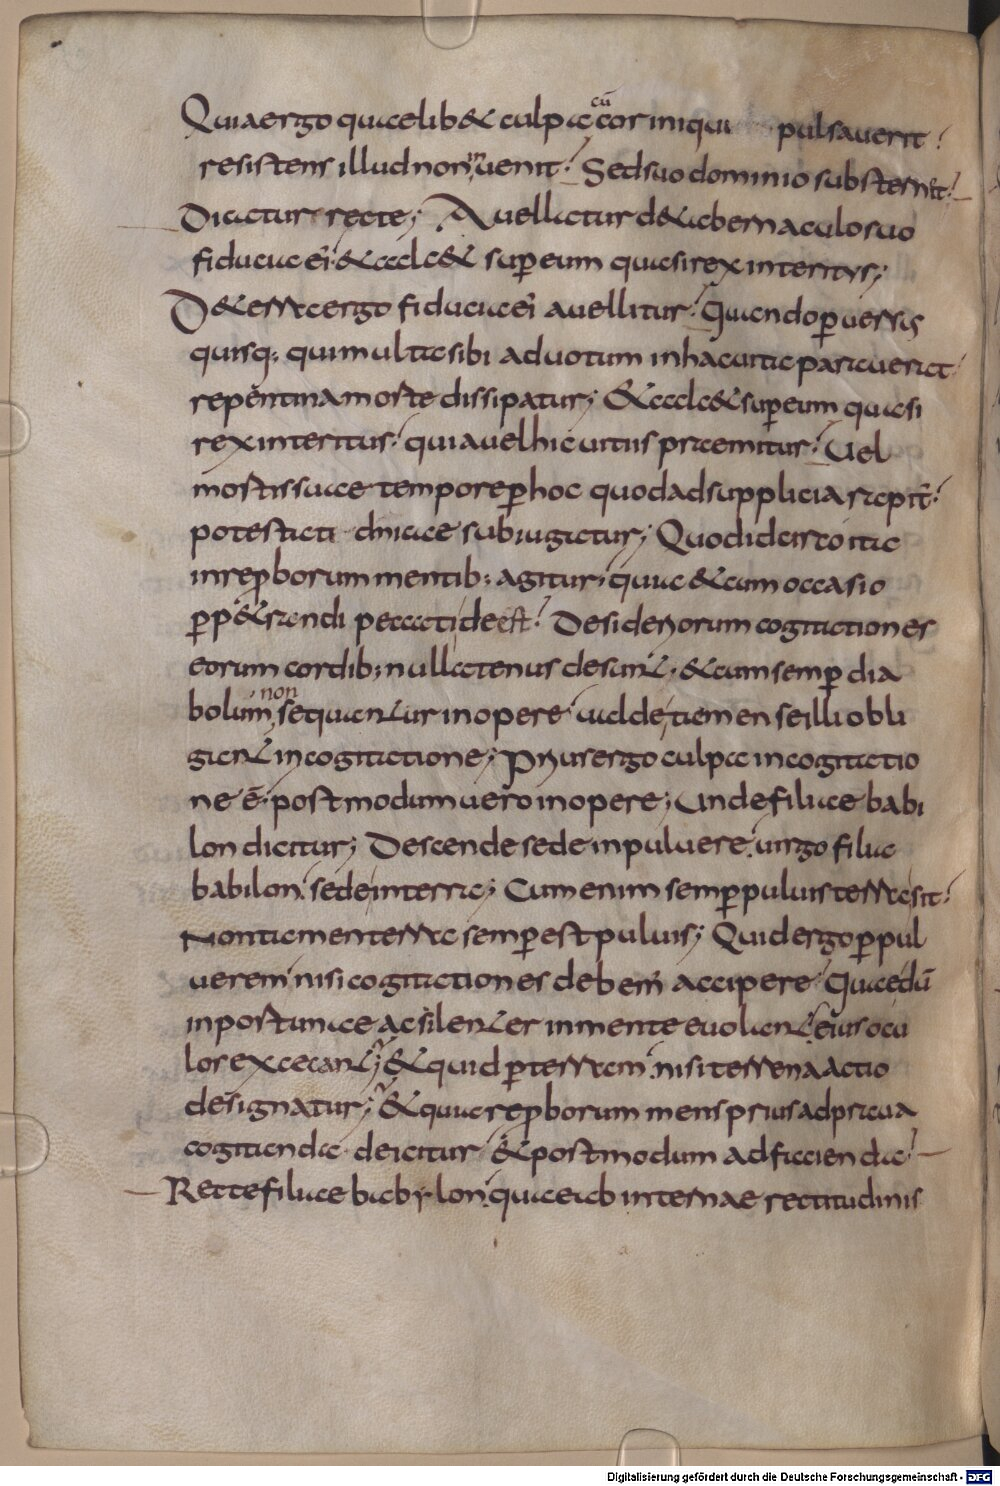 Quia ergo quaelib& culpa cū cor iniqui pulsaverit
resistens illud non inuenit. Sed suo dominio substernit.
Dicatur recte; Auellatur d& abernaculo suo
fiducia ei. & calc& sup eum quasi rex interitus;
D& erra ergo fiducia ei auellitur. Quando puersus
quisq; qui multa sibi ad uotum in hac uita parauerat
repentina morte dissipatur; & calc& sup eum quasi
rex interitus. quia uel hic uitiis praemitur. Uel
mortis suae tempore p hoc quod ad supplicia rapit.
potestati dniacae subiugatur; Quod idcirco ita
in reproborum mentib; agitur. quia & cum occasio
pp&randi peccati deest. Desideriorum cogitationes
eorum cordib; nullatenus desunt. & cum semp dia
bolum non sequantur in opere ualde tamen se illi obli
gant in cogitatione; Prius ergo culpa in cogitatio
ne ē. post modum uero in opere; Unde filiae babi
lon dicitur; Descende sede in puluere. uirgo filia
babilon. sede in terra; Cum enim semp puluis terra sit.
Non tamen terra semp est puluis; Quid ergo p pul
uerem nisi cogitationes debem accipere. Quae dū
inportunae ac silenter in mente euolant. eius ocu
los excecant; & quid p terram. nisi terrena actio
designatur; & quia reproborum mens prius ad praua
cogitanda deicitur. & post modum ad facienda.
Recte filiae babylon. quae ab internae rectitudinis
Digitalisierung gefördert durch die Deutsche Forschungsgemeinschaft - DFG